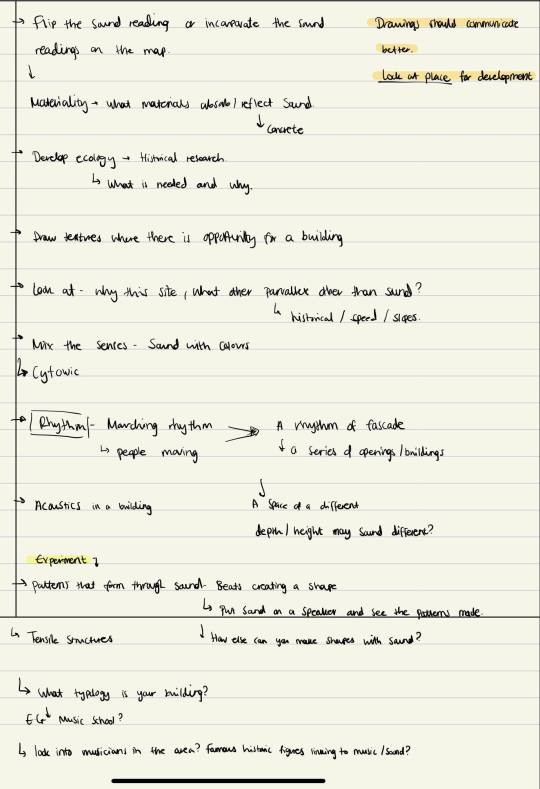 → Flip the sound reading or incorporate the sound
readings on the map.
↓
Materiality → what materials absorb/reflect sound
↓ concrete
→ Develop ecology → Historical research.
↳ What is needed and why.
→ Draw textures where there is opportunity for a building
→ Look at - why this site, what other parrallex other than sund?
↳ historical / speed / slopes.
→ Mix the senses - Sound with colours
↳ Cytowic
→ Rhythm - Marching rhythm → A rhythm of fascade
↳ people moving ↓ a series of openings/buildings
→ Acoustics in a building
↓
A space of a different
depth/height may sound different?
Experiment ↴
→ patterns that form through sound - Beats creating a shape
↳ Put sand on a speaker and see the patterns made.
↳ Tensile structures ↓ How else can you make shapes with sound?
↳ What typology is your building?
EG ↓ Music School?
↳ look into musicians in the area? famous historic figures linking to music/sound?
Drawings should communicate
better.
Look at place for development